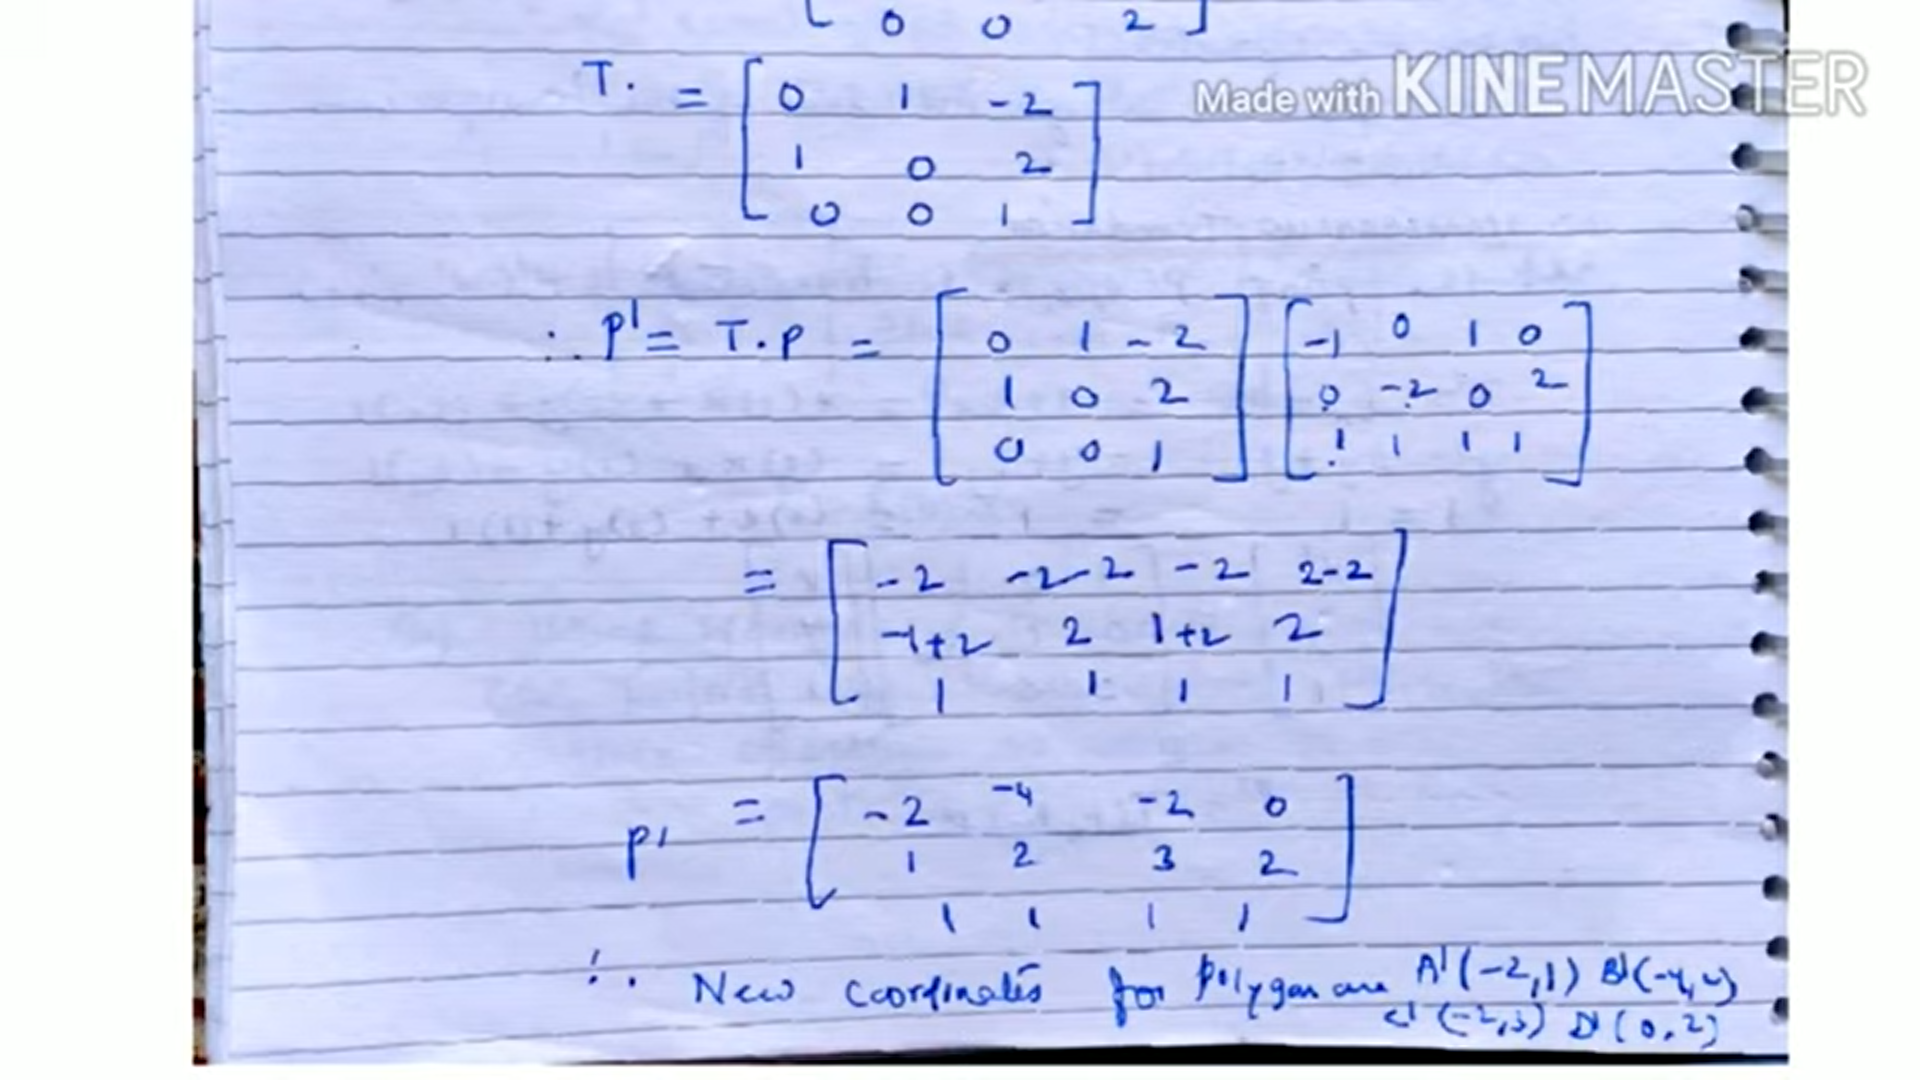 [ 0 0 2 ]
Made with KINEMASTER
T. = [ 0 1 -2
1 0 2
0 0 1 ]
∴ P' = T.P = [ 0 1 -2 ] [ -1 0 1 0 ]
[ 1 0 2 ] [ 0 -2 0 2 ]
[ 0 0 1 ] [ 1 1 1 1 ]
= [ -2 -2-2 -2 2-2
-1+2 2 1+2 2
1 1 1 1 ]
P' = [ -2 -4 -2 0
1 2 3 2
1 1 1 1 ]
∴ New coordinates for Polygon are A'(-2,1) B'(-4,2)
C'(-2,3) D'(0,2)